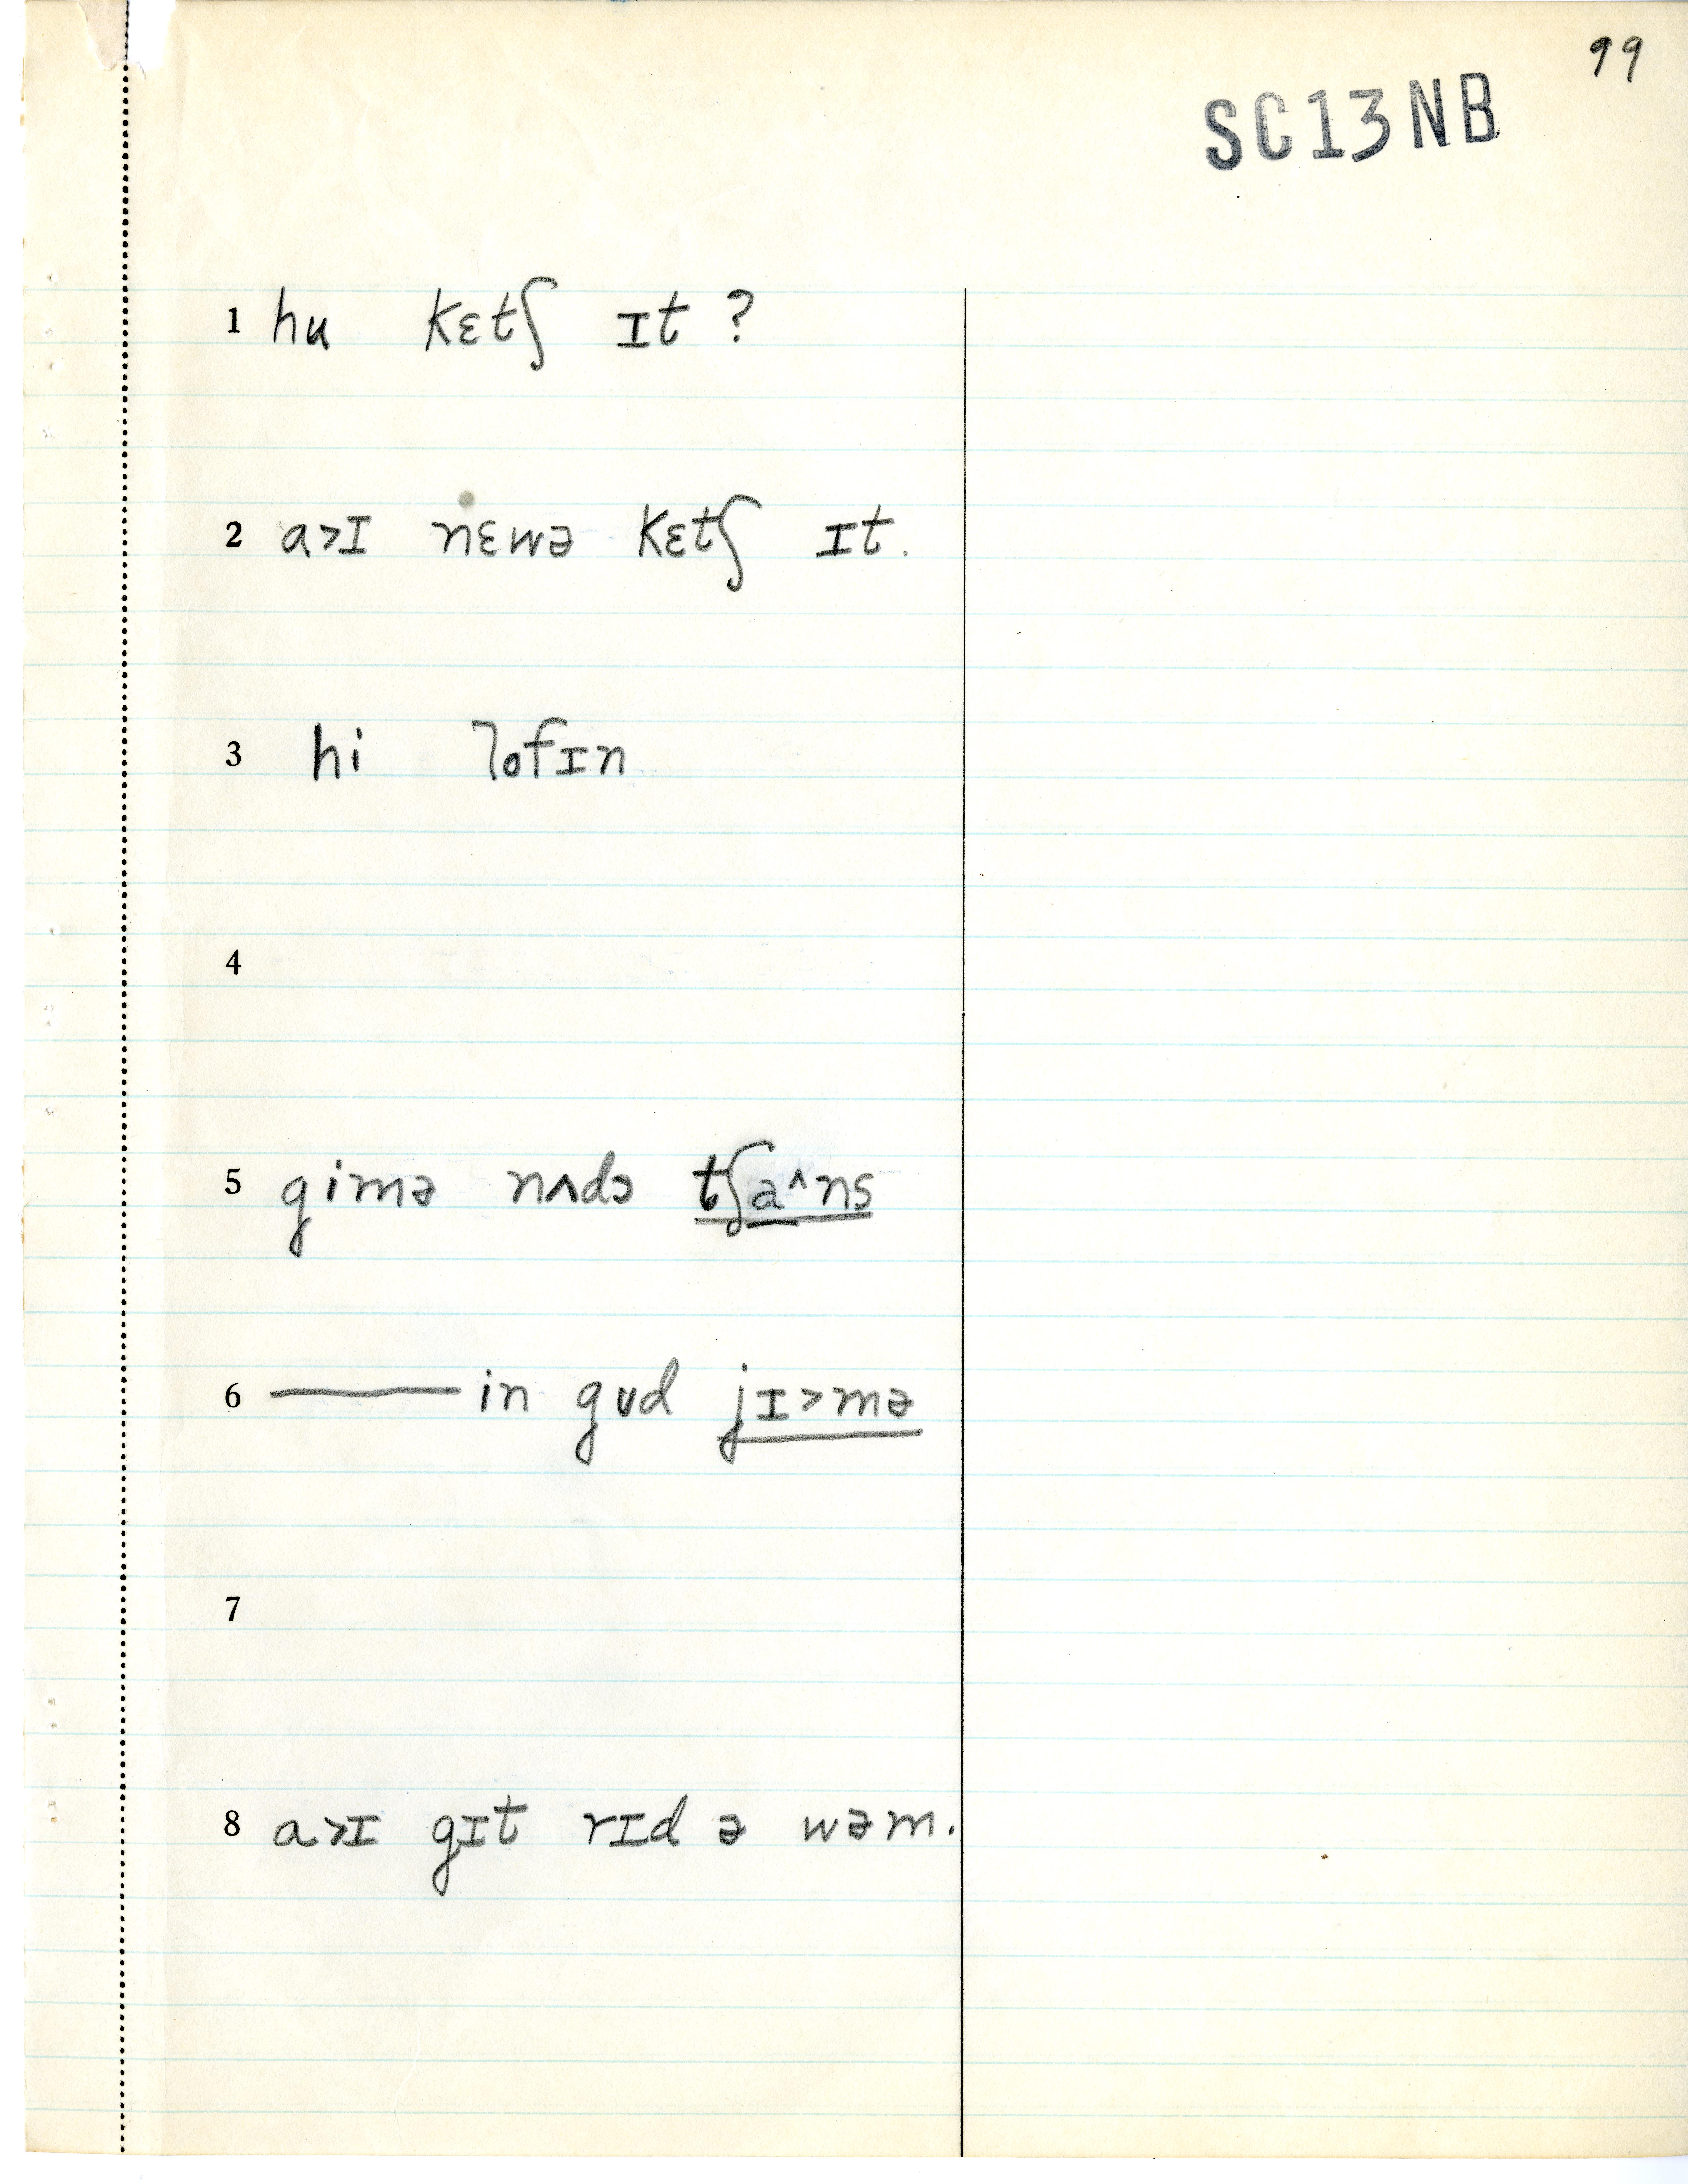 99
SC13NB
1 hu kɛtʃ ɪt ?
2 a>ɪ nɛwə kɛtʃ ɪt.
3 hi lofɪn
4
5 gimə nʌdə tʃa^ns
6 —— in gʊd jɪ>mə
7
8 a>ɪ gɪt rɪd ə wəm.